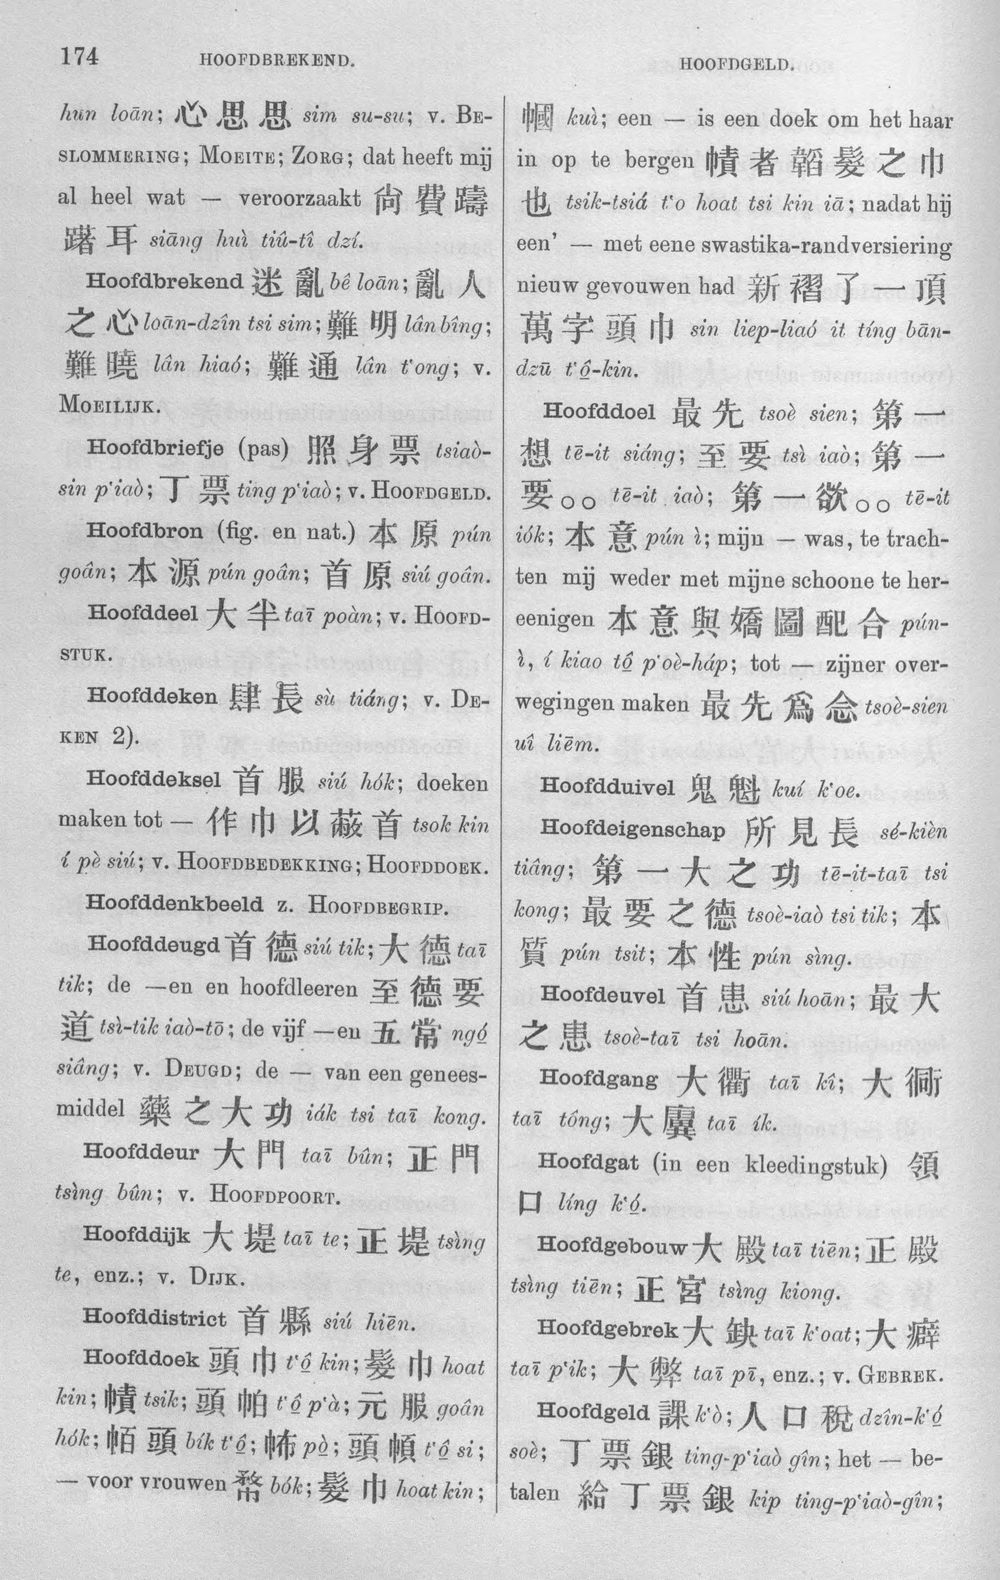 174
HOOFDBREKEND.
HOOFDGELD.
hun loān; 心思思 sim su-su; v. BE-
SLOMMERING; MOEITE; ZORG; dat heeft mij
al heel wat — veroorzaakt 尙費躊
躇耳 siāng huì tiû-tî dzí.
Hoofdbrekend 迷亂 bê loān; 亂人
之心 loān-dzîn tsi sim; 難明 lân bîng;
難曉 lân hiaó; 難通 lân t'ong; v.
MOEILIJK.
Hoofdbriefje (pas) 照身票 tsiaò-
sin p'iaò; 丁票 ting p'iaò; v. HOOFDGELD.
Hoofdbron (fig. en nat.) 本原 pún
goân; 本源 pún goân; 首原 siú goân.
Hoofddeel 大半 taī poàn; v. HOOFD-
STUK.
Hoofddeken 肆長 sù tiáng; v. DE-
KEN 2).
Hoofddeksel 首服 siú hók; doeken
maken tot — 作巾以蔽首 tsok kin
í pè siú; v. HOOFDBEDEKKING; HOOFDDOEK.
Hoofddenkbeeld z. HOOFDBEGRIP.
Hoofddeugd 首德 siú tik; 大德 taī
tik; de —en en hoofdleeren 至德要
道 tsì-tik iaò-tō; de vijf —en 五常 ngó
siâng; v. DEUGD; de — van een genees-
middel 藥之大功 iák tsi taī kong.
Hoofddeur 大門 taī bûn; 正門
tsìng bûn; v. HOOFDPOORT.
Hoofddijk 大堤 taī te; 正堤 tsìng
te, enz.; v. DIJK.
Hoofddistrict 首縣 siú hiēn.
Hoofddoek 頭巾 t'ô kin; 髮巾 hoat
kin; 幘 tsik; 頭帕 t'ô p'à; 元服 goân
hók; 帞頭 bík t'ô; 㠴 pò; 頭㡒 t'ô si;
— voor vrouwen 幦 bók; 髮巾 hoat kin;
幗 kuì; een — is een doek om het haar
in op te bergen 幘者韜髮之巾
也 tsik-tsiá t'o hoat tsi kin iā; nadat hij
een' — met eene swastika-randversiering
nieuw gevouwen had 新褶了一頂
萬字頭巾 sin liep-liaó it tíng bān-
dzū t'ô-kin.
Hoofddoel 最先 tsoè sien; 第一
想 tē-it siáng; 至要 tsì iaò; 第一
要○○ tē-it iaò; 第一欲○○ tē-it
iók; 本意 pún ì; mijn — was, te trach-
ten mij weder met mijne schoone te her-
eenigen 本意與嬌圖配合 pún-
ì, í kiao tô p'oè-háp; tot — zijner over-
wegingen maken 最先爲念 tsoè-sien
uî liēm.
Hoofdduivel 鬼魁 kuí k'oe.
Hoofdeigenschap 所見長 sé-kièn
tiâng; 第一大之功 tē-it-taī tsi
kong; 最要之德 tsoè-iaò tsi tik; 本
質 pún tsit; 本性 pún sìng.
Hoofdeuvel 首患 siú hoān; 最大
之患 tsoè-taī tsi hoān.
Hoofdgang 大衢 taī kî; 大衕
taī tóng; 大廙 taī ík.
Hoofdgat (in een kleedingstuk) 領
口 líng k'ó.
Hoofdgebouw 大殿 taī tiēn; 正殿
tsìng tiēn; 正宮 tsìng kiong.
Hoofdgebrek 大缺 taī k'oat; 大癖
taī p'ik; 大弊 taī pī, enz.; v. GEBREK.
Hoofdgeld 課 k'ò; 人口稅 dzîn-k'ó
soè; 丁票銀 ting-p'iaò gîn; het — be-
talen 給丁票銀 kip ting-p'iaò-gîn;